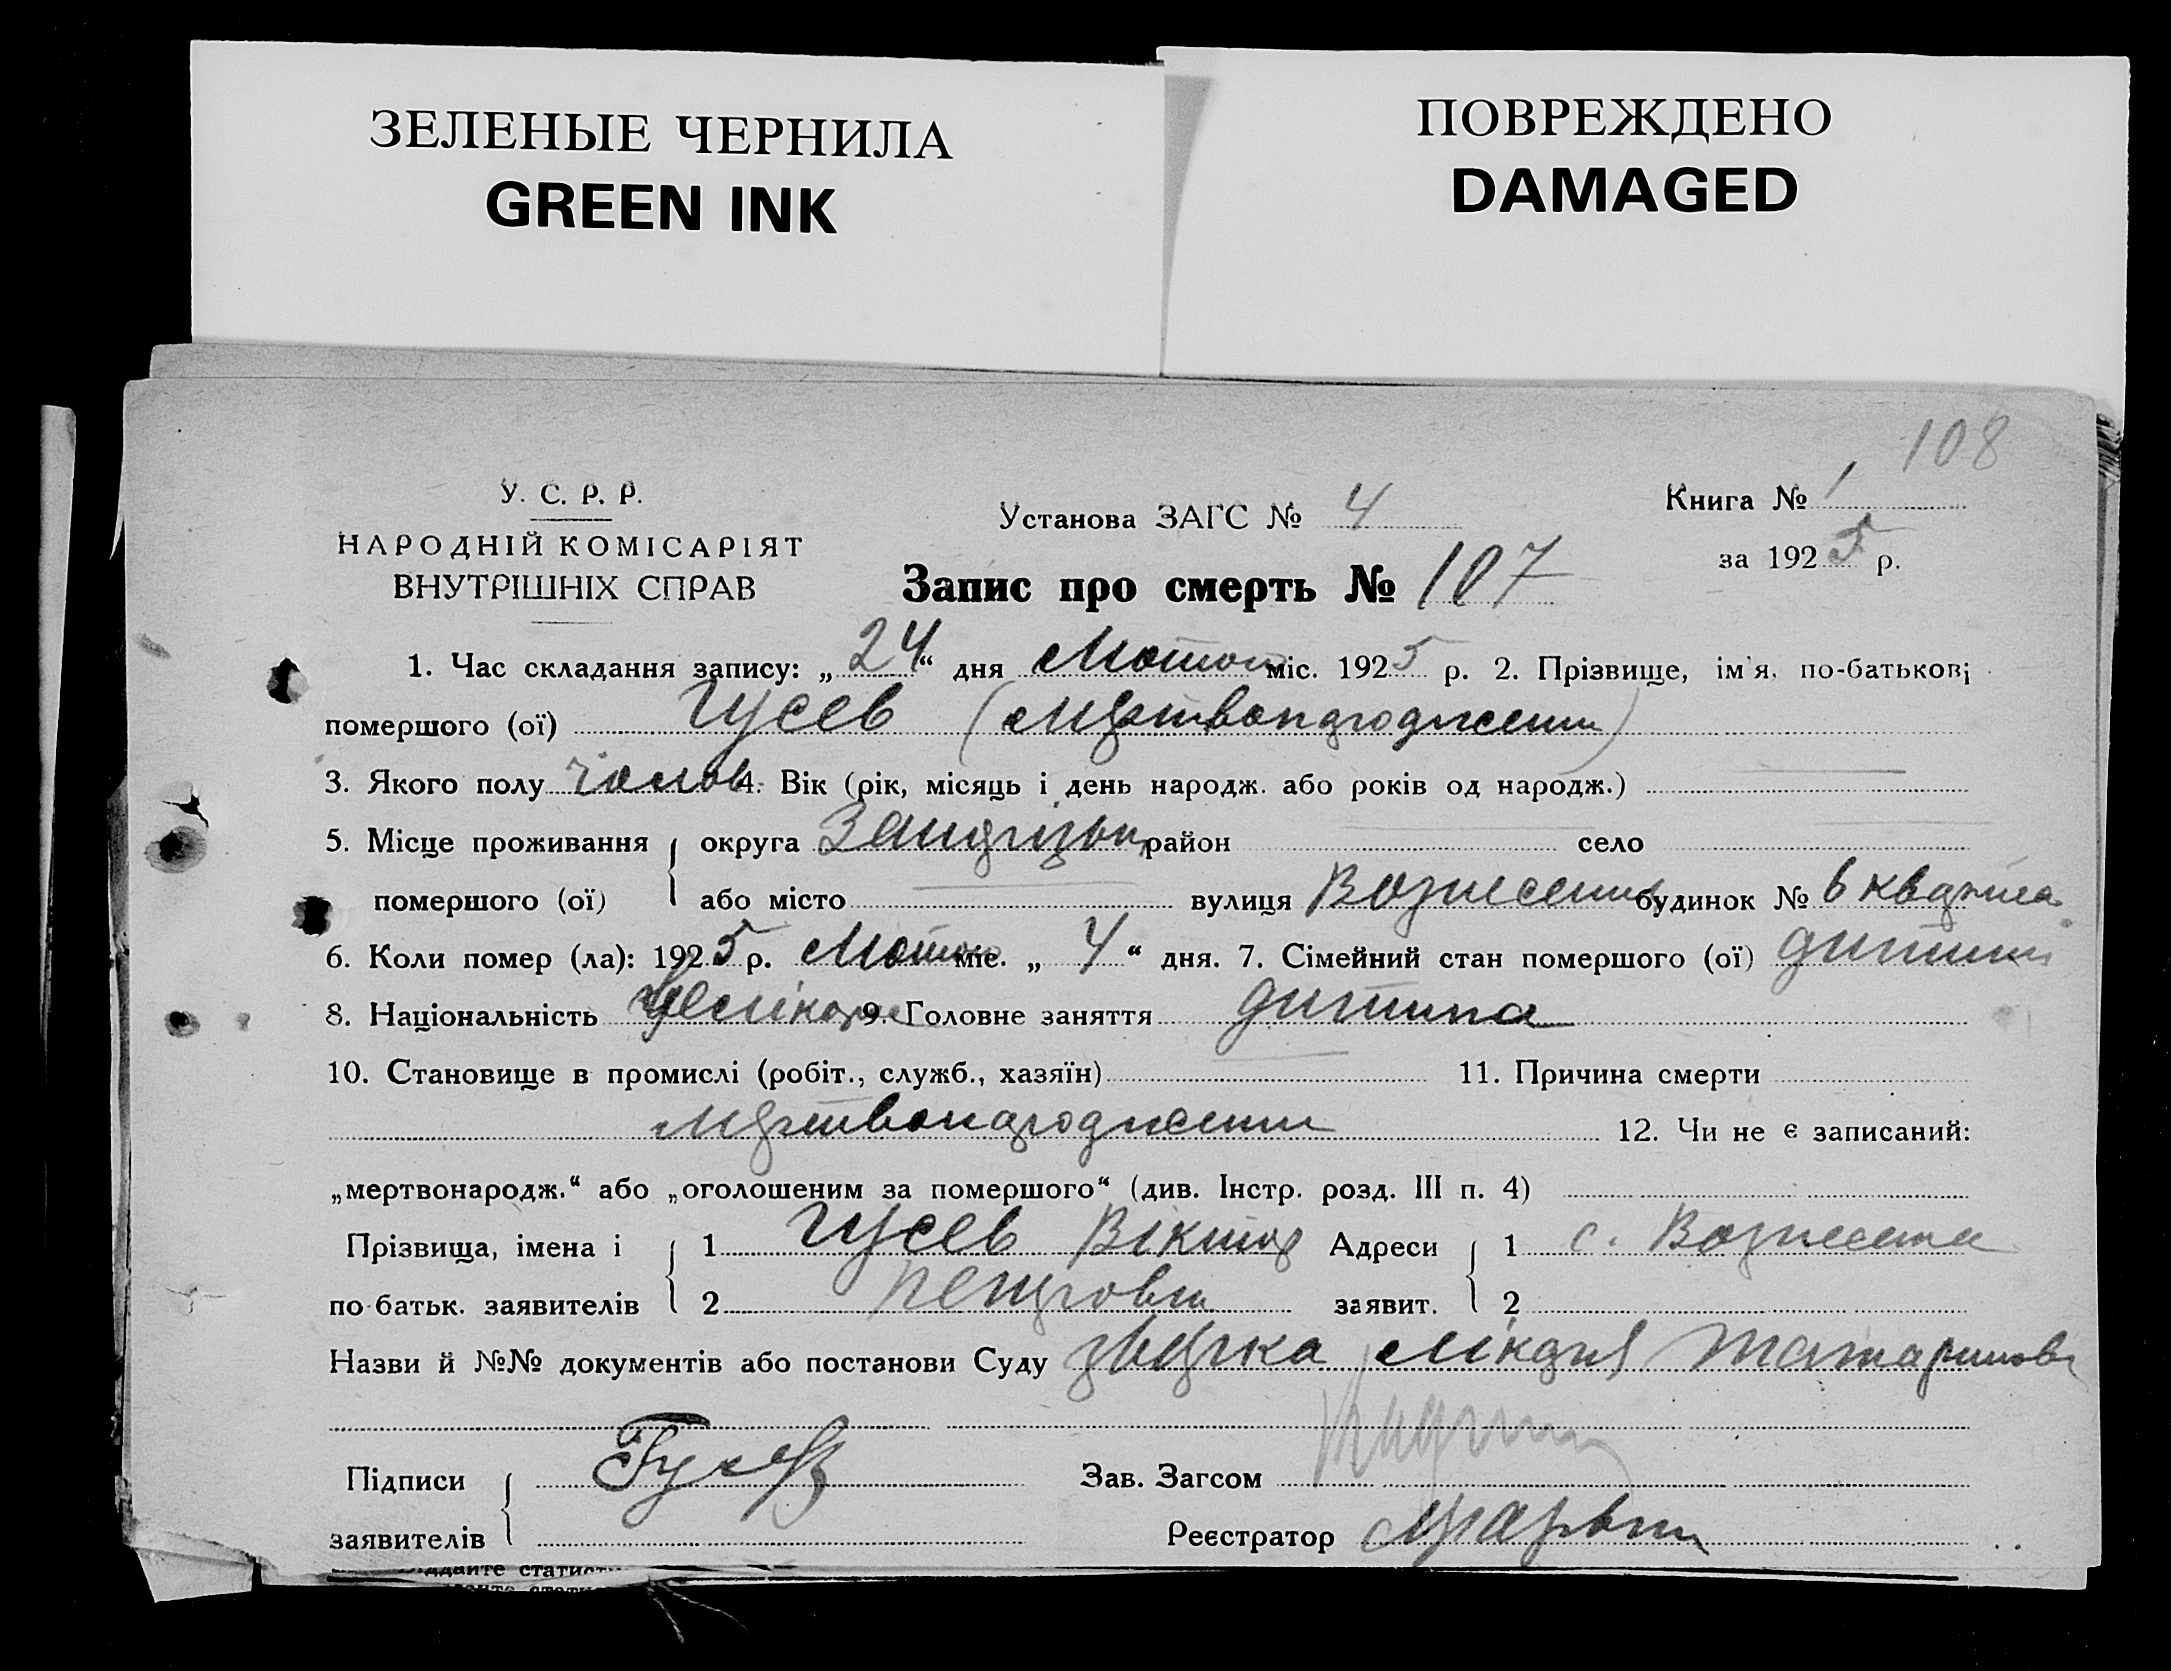 ЗЕЛЕНЫЕ ЧЕРНИЛА
GREEN INK
ПОВРЕЖДЕНО
DAMAGED
108
У. С. Р. Р.
НАРОДНІЙ КОМІСАРІЯТ
ВНУТРІШНІХ СПРАВ
Установа ЗАГС № 4
Книга № 1
за 1925 р.
Запис про смерть № 107
1. Час складання запису: „24“ дня Лютого міс. 1925 р. 2. Прізвище, ім'я, по-батькові
помершого (ої) Гусев (мертвонароджений)
3. Якого полу чолов. 4. Вік (рік, місяць і день народж. або років од народж.)
5. Місце проживання округа район село
помершого (ої) або місто вулиця Вознесенка будинок № 6 квартал
6. Коли помер (ла): 1925 р. Лютого міс. „4“ дня. 7. Сімейний стан помершого (ої) дитина
8. Національність 9. Головне заняття дитина
10. Становище в промислі (робіт., служб., хазяїн) 11. Причина смерти
мертвонароджений 12. Чи не є записаний:
„мертвонародж.“ або „оголошеним за помершого“ (див. Інстр. розд. III п. 4)
Прізвища, імена і 1 Гусев Віктор Адреси 1 с. Вознесенка
по-батьк. заявителів 2 Петрович заявит. 2
Назви й №№ документів або постанови Суду лікаря
Підписи Гусев Зав. Загсом
заявителів Реєстратор